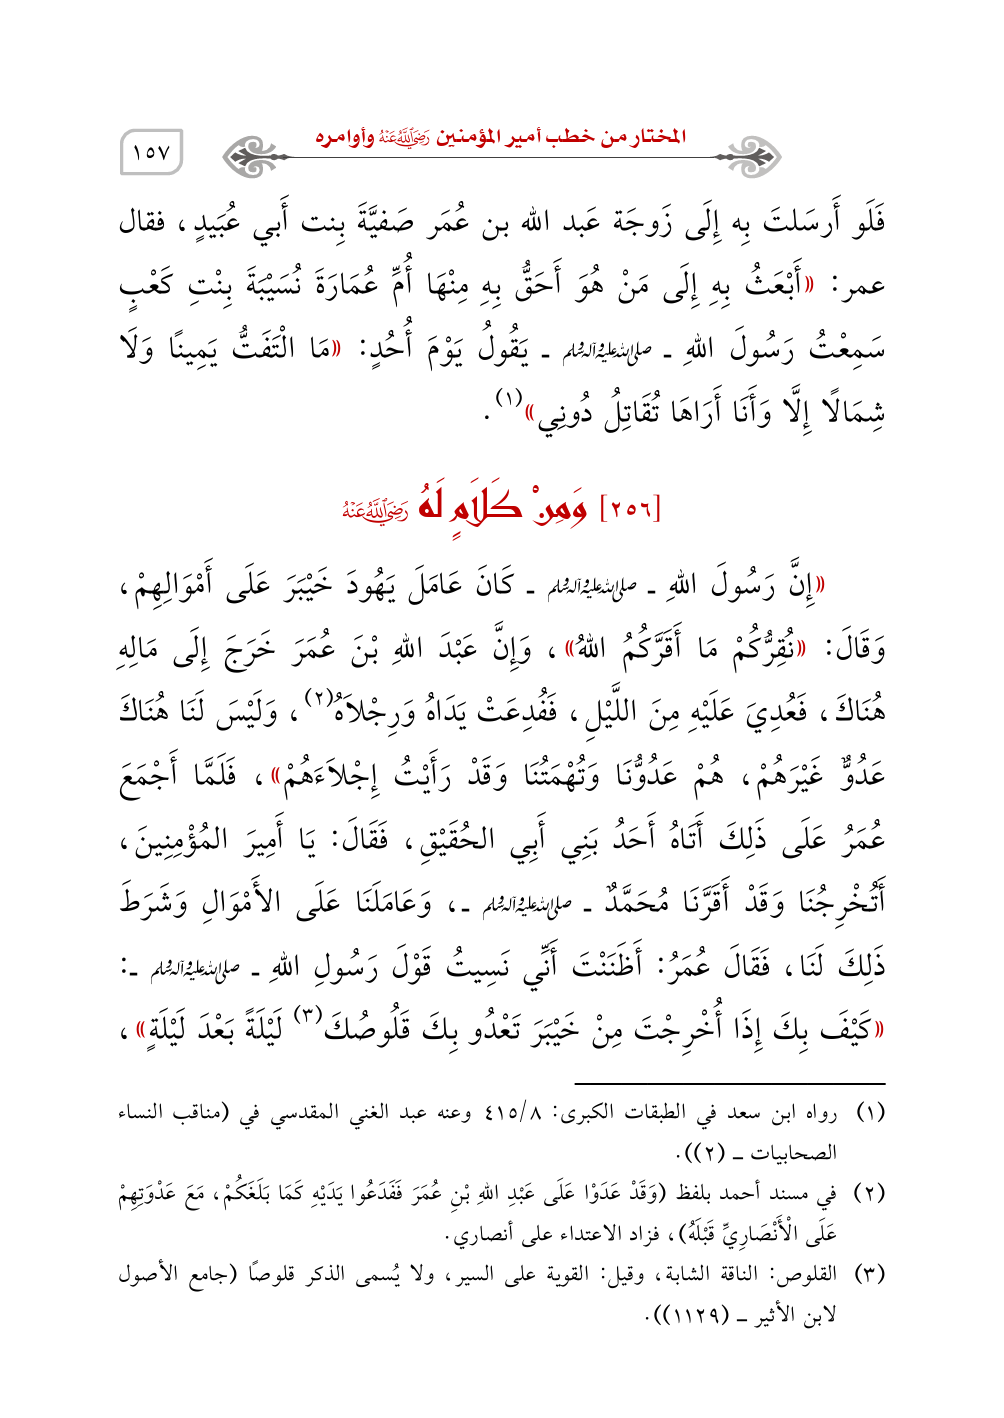 المختار من خطب أمير المؤمنين رَضِيَ اللَّهُ عَنْهُ وأوامره
١٥٧
فَلَو أَرسَلتَ بِه إِلَى زَوجَة عَبد الله بن عُمَر صَفيَّةَ بِنت أَبي عُبَيدٍ، فقال
عمر: «أَبْعَثُ بِهِ إِلَى مَنْ هُوَ أَحَقُّ بِهِ مِنْهَا أُمِّ عُمَارَةَ نُسَيْبَةَ بِنْتِ كَعْبٍ
سَمِعْتُ رَسُولَ اللهِ ـ صلى الله عليه وآله وسلم ـ يَقُولُ يَوْمَ أُحُدٍ: «مَا الْتَفَتُّ يَمِينًا وَلَا
شِمَالًا إِلَّا وَأَنَا أَرَاهَا تُقَاتِلُ دُونِي»(١).
[٢٥٦] وَمِنْ كَلَامٍ لَهُ رَضِيَ اللَّهُ عَنْهُ
«إِنَّ رَسُولَ اللهِ ـ صلى الله عليه وآله وسلم ـ كَانَ عَامَلَ يَهُودَ خَيْبَرَ عَلَى أَمْوَالِهِمْ،
وَقَالَ: «نُقِرُّكُمْ مَا أَقَرَّكُمُ اللهُ»، وَإِنَّ عَبْدَ اللهِ بْنَ عُمَرَ خَرَجَ إِلَى مَالِهِ
هُنَاكَ، فَعُدِيَ عَلَيْهِ مِنَ اللَّيْلِ، فَفُدِعَتْ يَدَاهُ وَرِجْلاَهُ(٢)، وَلَيْسَ لَنَا هُنَاكَ
عَدُوٌّ غَيْرَهُمْ، هُمْ عَدُوُّنَا وَتُهْمَتُنَا وَقَدْ رَأَيْتُ إِجْلاَءَهُمْ»، فَلَمَّا أَجْمَعَ
عُمَرُ عَلَى ذَلِكَ أَتَاهُ أَحَدُ بَنِي أَبِي الحُقَيْقِ، فَقَالَ: يَا أَمِيرَ المُؤْمِنِينَ،
أَتُخْرِجُنَا وَقَدْ أَقَرَّنَا مُحَمَّدٌ ـ صلى الله عليه وآله وسلم ـ، وَعَامَلَنَا عَلَى الأَمْوَالِ وَشَرَطَ
ذَلِكَ لَنَا، فَقَالَ عُمَرُ: أَظَنَنْتَ أَنِّي نَسِيتُ قَوْلَ رَسُولِ اللهِ ـ صلى الله عليه وآله وسلم ـ:
«كَيْفَ بِكَ إِذَا أُخْرِجْتَ مِنْ خَيْبَرَ تَعْدُو بِكَ قَلُوصُكَ(٣) لَيْلَةً بَعْدَ لَيْلَةٍ»،
(١) رواه ابن سعد في الطبقات الكبرى: ٤١٥/٨ وعنه عبد الغني المقدسي في (مناقب النساء
الصحابيات ـ (٢)).
(٢) في مسند أحمد بلفظ (وَقَدْ عَدَوْا عَلَى عَبْدِ اللهِ بْنِ عُمَرَ فَفَدَعُوا يَدَيْهِ كَمَا بَلَغَكُمْ، مَعَ عَدْوَتِهِمْ
عَلَى الْأَنْصَارِيِّ قَبْلَهُ)، فزاد الاعتداء على أنصاري.
(٣) القلوص: الناقة الشابة، وقيل: القوية على السير، ولا يُسمى الذكر قلوصًا (جامع الأصول
لابن الأثير ـ (١١٢٩)).